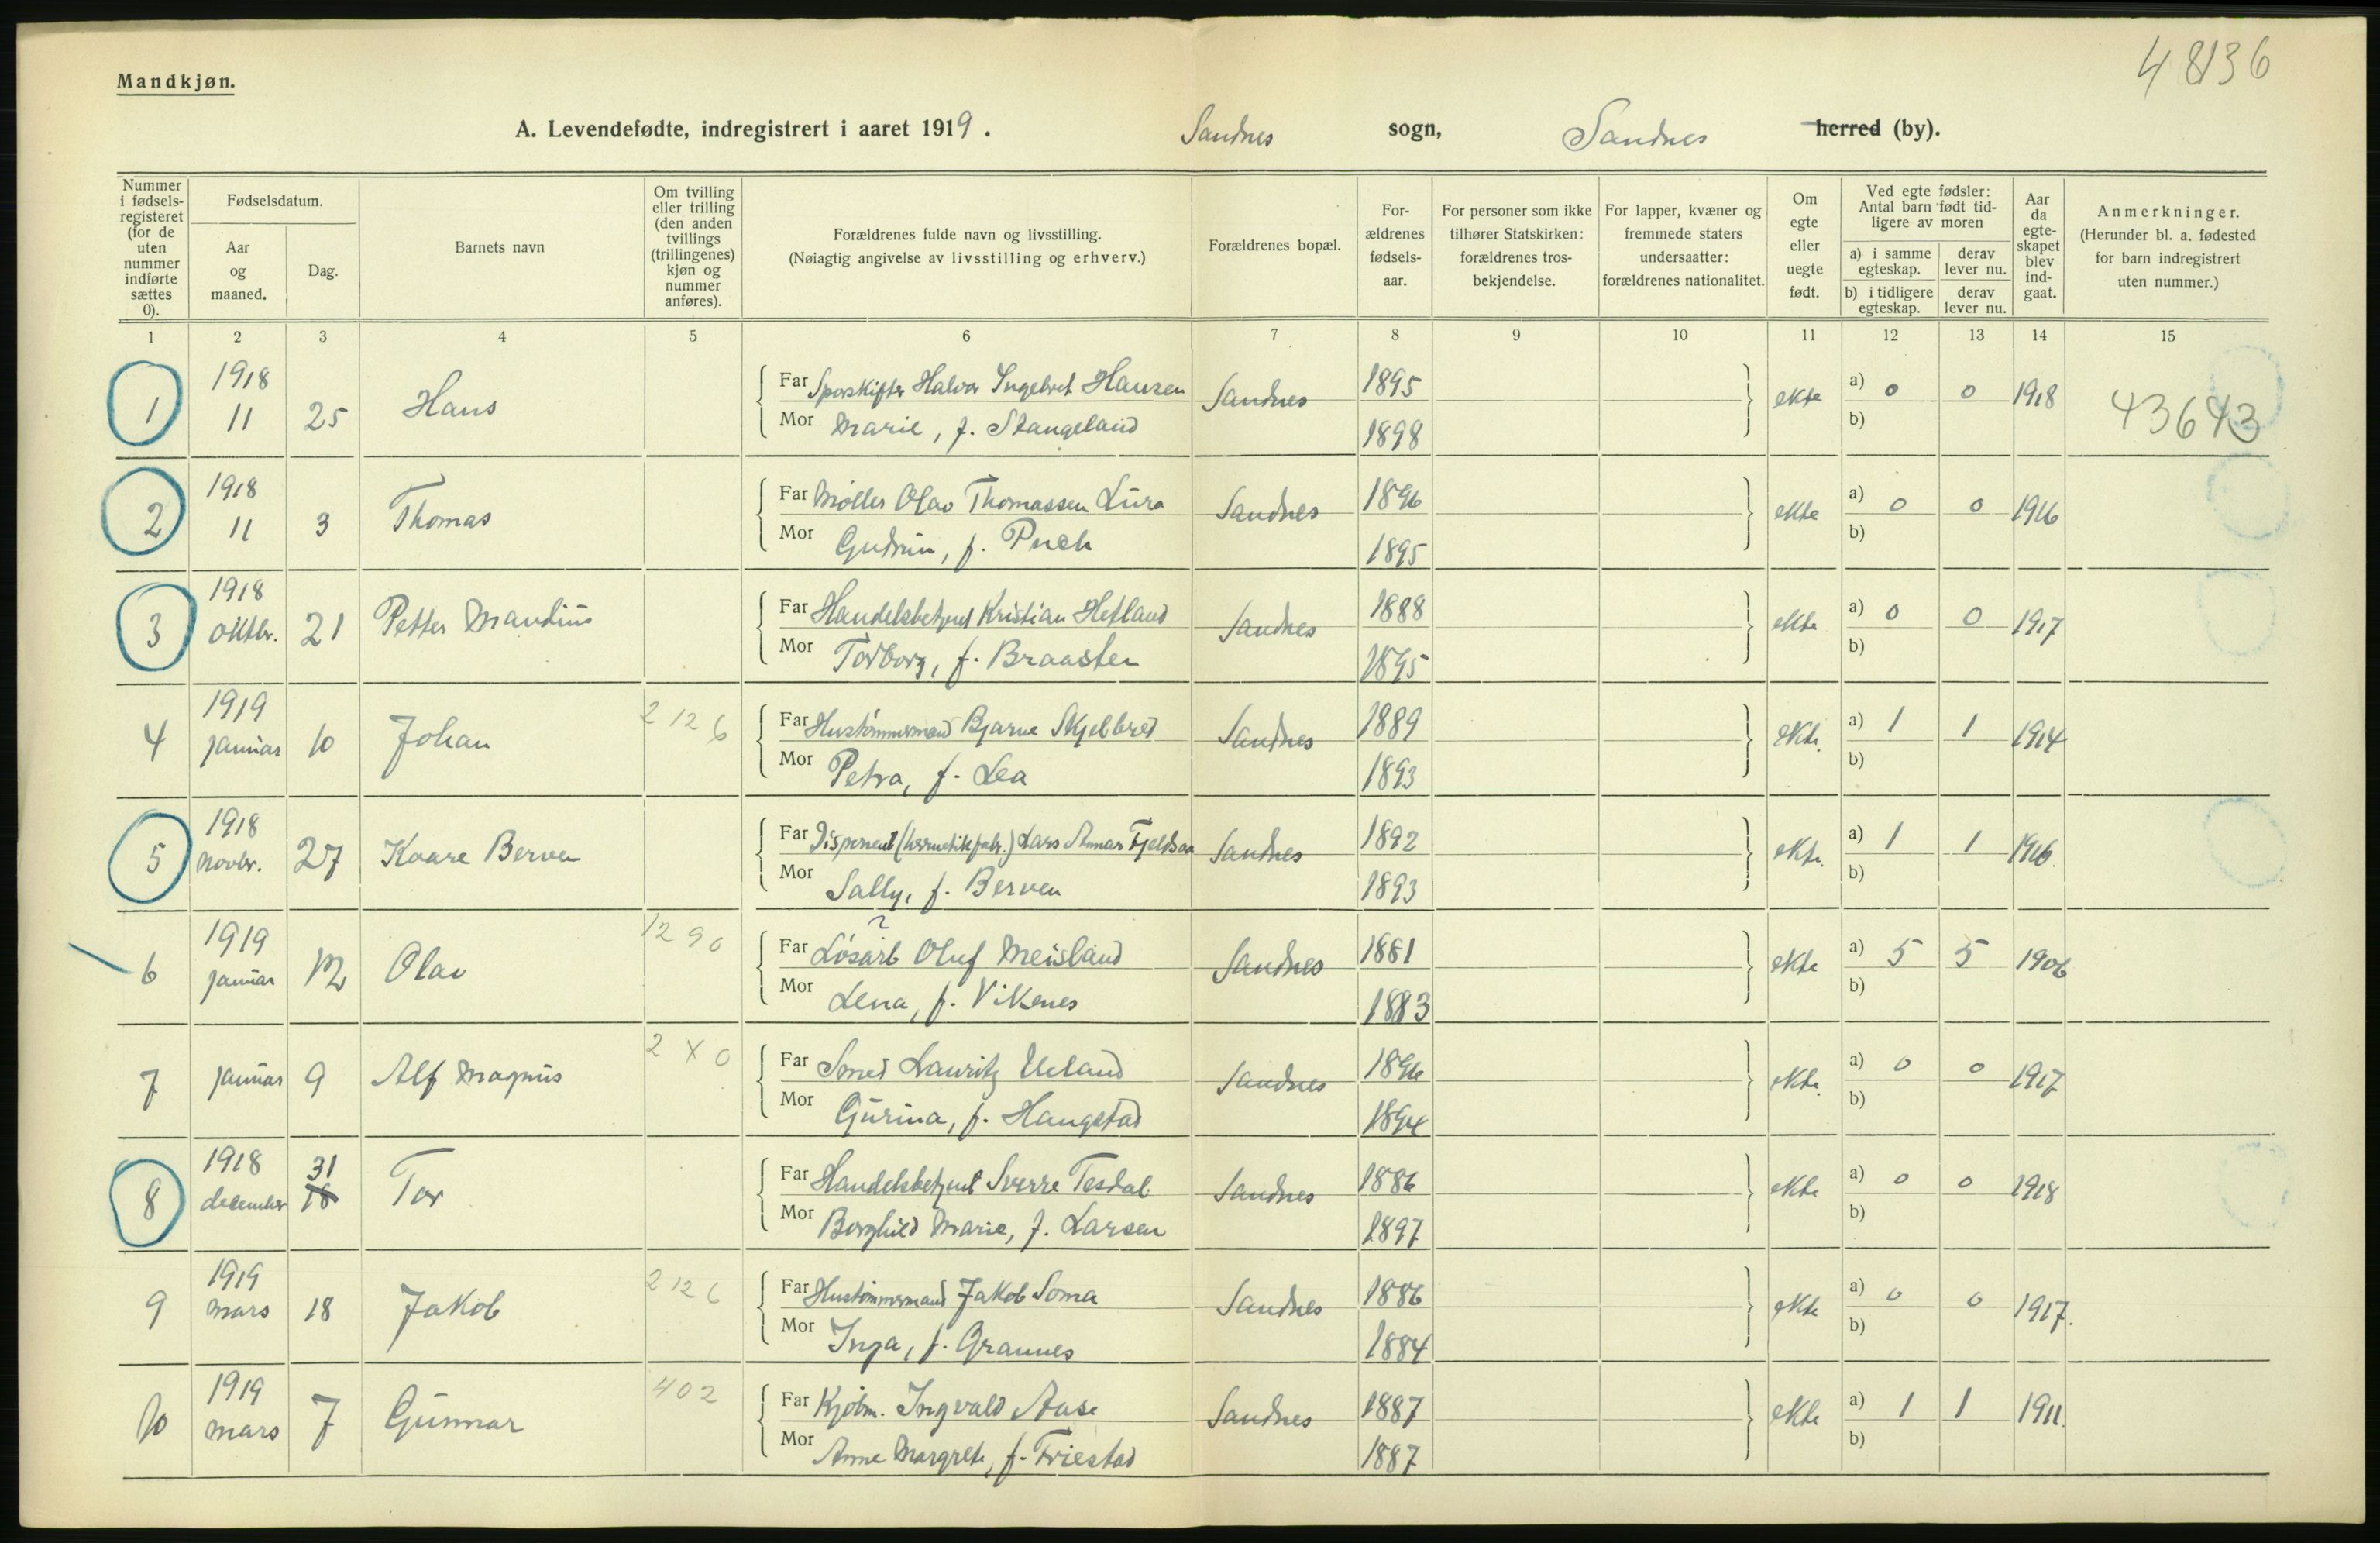 48136
Mandkjøn.
A. Levendefødte, indregistrert i aaret 1919. Sandnes sogn, Sandnes herred (by).
Nummer i fødselsregisteret (for de uten nummer indførte sættes 0).
Fødselsdatum.
Aar og maaned.
Dag.
Barnets navn
Om tvilling eller trilling (den anden tvillings (trillingenes) kjøn og nummer anføres).
Forældrenes fulde navn og livsstilling.
(Nøiagtig angivelse av livsstilling og erhverv.)
Forældrenes bopæl.
Forældrenes fødselsaar.
For personer som ikke tilhører Statskirken: forældrenes trosbekjendelse.
For lapper, kvæner og fremmede staters undersaatter: forældrenes nationalitet.
Om egte eller uegte født.
Ved egte fødsler: Antal barn født tidligere av moren
a) i samme egteskap. derav lever nu.
b) i tidligere egteskap. derav lever nu.
Aar da egteskapet blev indgaat.
Anmerkninger.
(Herunder bl. a. fødested for barn indregistrert uten nummer.)
1 2 3 4 5 6 7 8 9 10 11 12 13 14 15
1 1918 11 25 Hans Far Sporskifter Halvor Ingebret Hansen Sandnes 1895 ekte a) 0 0 1918 43643
Mor Marie, f. Stangeland 1898 b)
2 1918 11 3 Thomas Far Møller Olav Thomassen Lura Sandnes 1896 ekte a) 0 0 1916
Mor Gudrun, f. Puch 1895 b)
3 1918 oktbr. 21 Petter Mandius Far Handelsbetjent Kristian Hetland Sandnes 1888 ekte a) 0 0 1917
Mor Torborg, f. Braasten 1895 b)
4 1919 januar 10 Johan 2 12 6 Far Hustømmermand Bjarne Skjelbred Sandnes 1889 ekte. a) 1 1 1914
Mor Petra, f. Lea 1893 b)
5 1918 novbr. 27 Kaare Berven Far Disponent (hermetikfabr.) Lars Fjeldsaa Sandnes 1892 ekte. a) 1 1 1916.
Mor Sally, f. Berven 1893 b)
6 1919 januar 12 Olav 12 90 Far Løsarb Oluf Meisland Sandnes 1881 ekte a) 5 5 1906
Mor Lena, f. Vikenes 1883 b)
7 januar 9 Alf Magnus 2 X 0 Far Smed Lauritz Ueland Sandnes 1896 ekte. a) 0 0 1917
Mor Gurina, f. Haugstad 1894 b)
8 1918 december 31 18 Tor Far Handelsbetjent Sverre Tesdal Sandnes 1886 ekte a) 0 0 1918
Mor Borghild Marie, f. Larsen 1897 b)
9 1919 mars 18 Jakob 2 12 6 Far Hustømmermand Jakob Soma Sandnes 1886 ekte a) 0 0 1917.
Mor Inga, f. Grannes 1884 b)
10 1919 mars 7 Gunnar 402 Far Kjøbm. Ingvald Aase Sandnes 1887 ekte a) 1 1 1911.
Mor Anne Margrete, f. Friestad 1887 b)